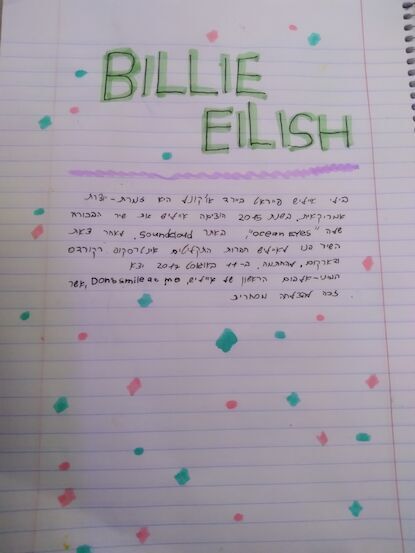 BILLIE
EILISH
בילי אייליש פייראט בירד או'קונל היא זמרת-יוצרת
אמריקאית. בשנת 2015 הוציאה אייליש את שיר הבכורה
שלה "ocean eyes", באתר soundcloud. לאחר צאת
השיר פנו לאייליש חברות התקליטים אינטרסקופ רקורדס
ודארקום, להחתמה. ב-11 באוגוסט 2017 יצא
המיני-אלבום הראשון של אייליש, Don't smile at me, אשר
זכה להצלחה מסחרית.